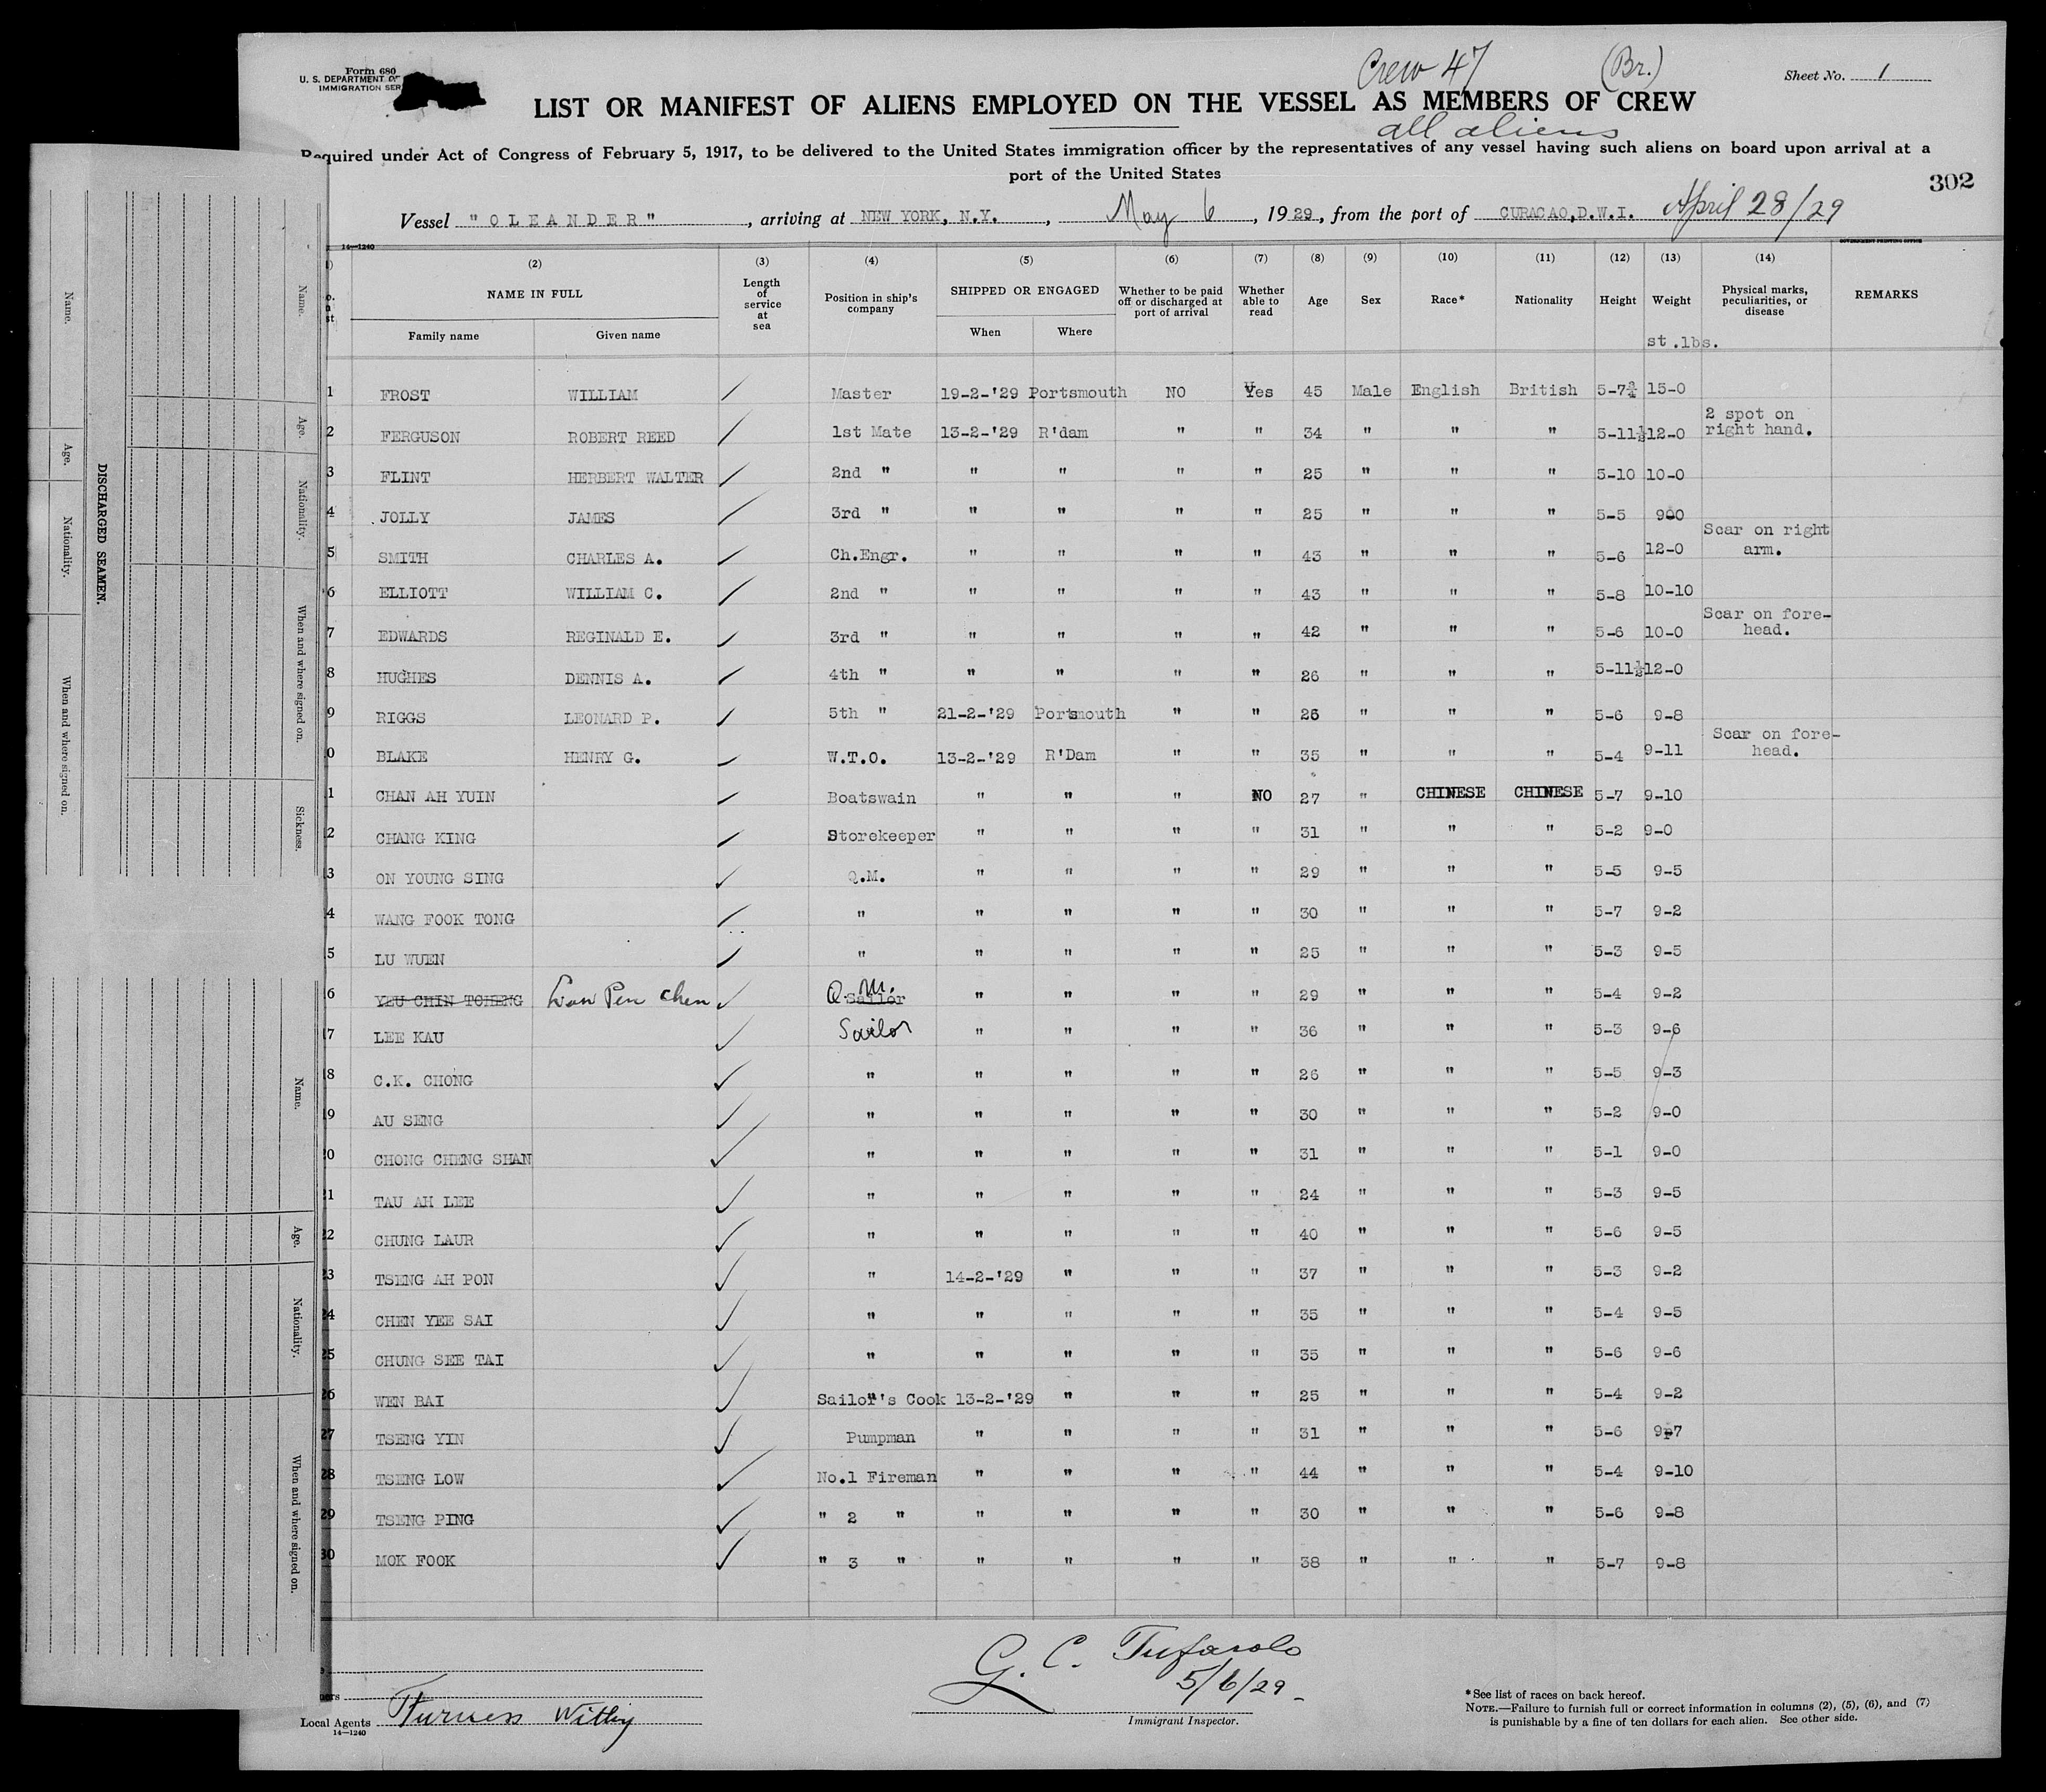 Form 680
U. S. DEPARTMENT OF
IMMIGRATION SER
Crew 47 (Br.)
Sheet No. 1
LIST OR MANIFEST OF ALIENS EMPLOYED ON THE VESSEL AS MEMBERS OF CREW
all aliens
Required under Act of Congress of February 5, 1917, to be delivered to the United States immigration officer by the representatives of any vessel having such aliens on board upon arrival at a
port of the United States
302
Vessel "OLEANDER", arriving at NEW YORK, N.Y., May 6, 1929, from the port of CURACAO,D.W.I. April 28/29
14—1240 GOVERNMENT PRINTING OFFICE
(2) (3) (4) (5) (6) (7) (8) (9) (10) (11) (12) (13) (14)
NAME IN FULL Family name Given name
Length of service at sea
Position in ship's company
SHIPPED OR ENGAGED When Where
Whether to be paid off or discharged at port of arrival
Whether able to read
Age Sex Race* Nationality Height Weight
Physical marks, peculiarities, or disease
REMARKS
st.lbs.
1 FROST WILLIAM Master 19-2-'29 Portsmouth NO Yes 45 Male English British 5-7¾ 15-0
2 FERGUSON ROBERT REED 1st Mate 13-2-'29 R'dam " " 34 " " " 5-11½ 12-0 2 spot on right hand.
3 FLINT HERBERT WALTER 2nd " " " " " 25 " " " 5-10 10-0
4 JOLLY JAMES 3rd " " " " " 25 " " " 5-5 9-0
5 SMITH CHARLES A. Ch.Engr. " " " " 43 " " " 5-6 12-0 Scar on right arm.
6 ELLIOTT WILLIAM C. 2nd " " " " " 43 " " " 5-8 10-10
7 EDWARDS REGINALD E. 3rd " " " " " 42 " " " 5-6 10-0 Scar on fore-head.
8 HUGHES DENNIS A. 4th " " " " " 26 " " " 5-11½ 12-0
9 RIGGS LEONARD P. 5th " 21-2-'29 Portsmouth " " 26 " " " 5-6 9-8
0 BLAKE HENRY G. W.T.O. 13-2-'29 R'Dam " " 35 " " " 5-4 9-11 Scar on fore-head.
1 CHAN AH YUIN Boatswain " " " NO 27 " CHINESE CHINESE 5-7 9-10
2 CHANG KING Storekeeper " " " " 31 " " " 5-2 9-0
3 ON YOUNG SING Q.M. " " " " 29 " " " 5-5 9-5
4 WANG FOOK TONG " " " " " 30 " " " 5-7 9-2
5 LU WUEN " " " " " 25 " " " 5-3 9-5
6 YEU CHIN TCHENG Low Pen Chen Q.M. Sailor " " " " 29 " " " 5-4 9-2
7 LEE KAU Sailor " " " " 36 " " " 5-3 9-6
8 C.K. CHONG " " " " " 26 " " " 5-5 9-3
9 AU SENG " " " " " 30 " " " 5-2 9-0
0 CHONG CHENG SHAN " " " " " 31 " " " 5-1 9-0
1 TAU AH LEE " " " " " 24 " " " 5-3 9-5
22 CHUNG LAUR " " " " " 40 " " " 5-6 9-5
23 TSENG AH PON " 14-2-'29 " " " 37 " " " 5-3 9-2
24 CHEN YEE SAI " " " " " 35 " " " 5-4 9-5
25 CHUNG SEE TAI " " " " " 35 " " " 5-6 9-6
26 WEN BAI Sailor's Cook 13-2-'29 " " " 25 " " " 5-4 9-2
27 TSENG YIN Pumpman " " " " 31 " " " 5-6 9-7
28 TSENG LOW No.1 Fireman " " " " 44 " " " 5-4 9-10
29 TSENG PING " 2 " " " " " 30 " " " 5-6 9-8
30 MOK FOOK " 3 " " " " " 38 " " " 5-7 9-8
G. C. Tufarolo
5/6/29
Immigrant Inspector.
Local Agents Furness Withy
14—1240
*See list of races on back hereof.
NOTE.—Failure to furnish full or correct information in columns (2), (5), (6), and (7)
is punishable by a fine of ten dollars for each alien. See other side.
DISCHARGED SEAMEN.
Name.
Age.
Nationality.
When and where signed on.
Name.
Age.
Nationality.
When and where signed on.
Sickness.
Name.
Age.
Nationality.
When and where signed on.